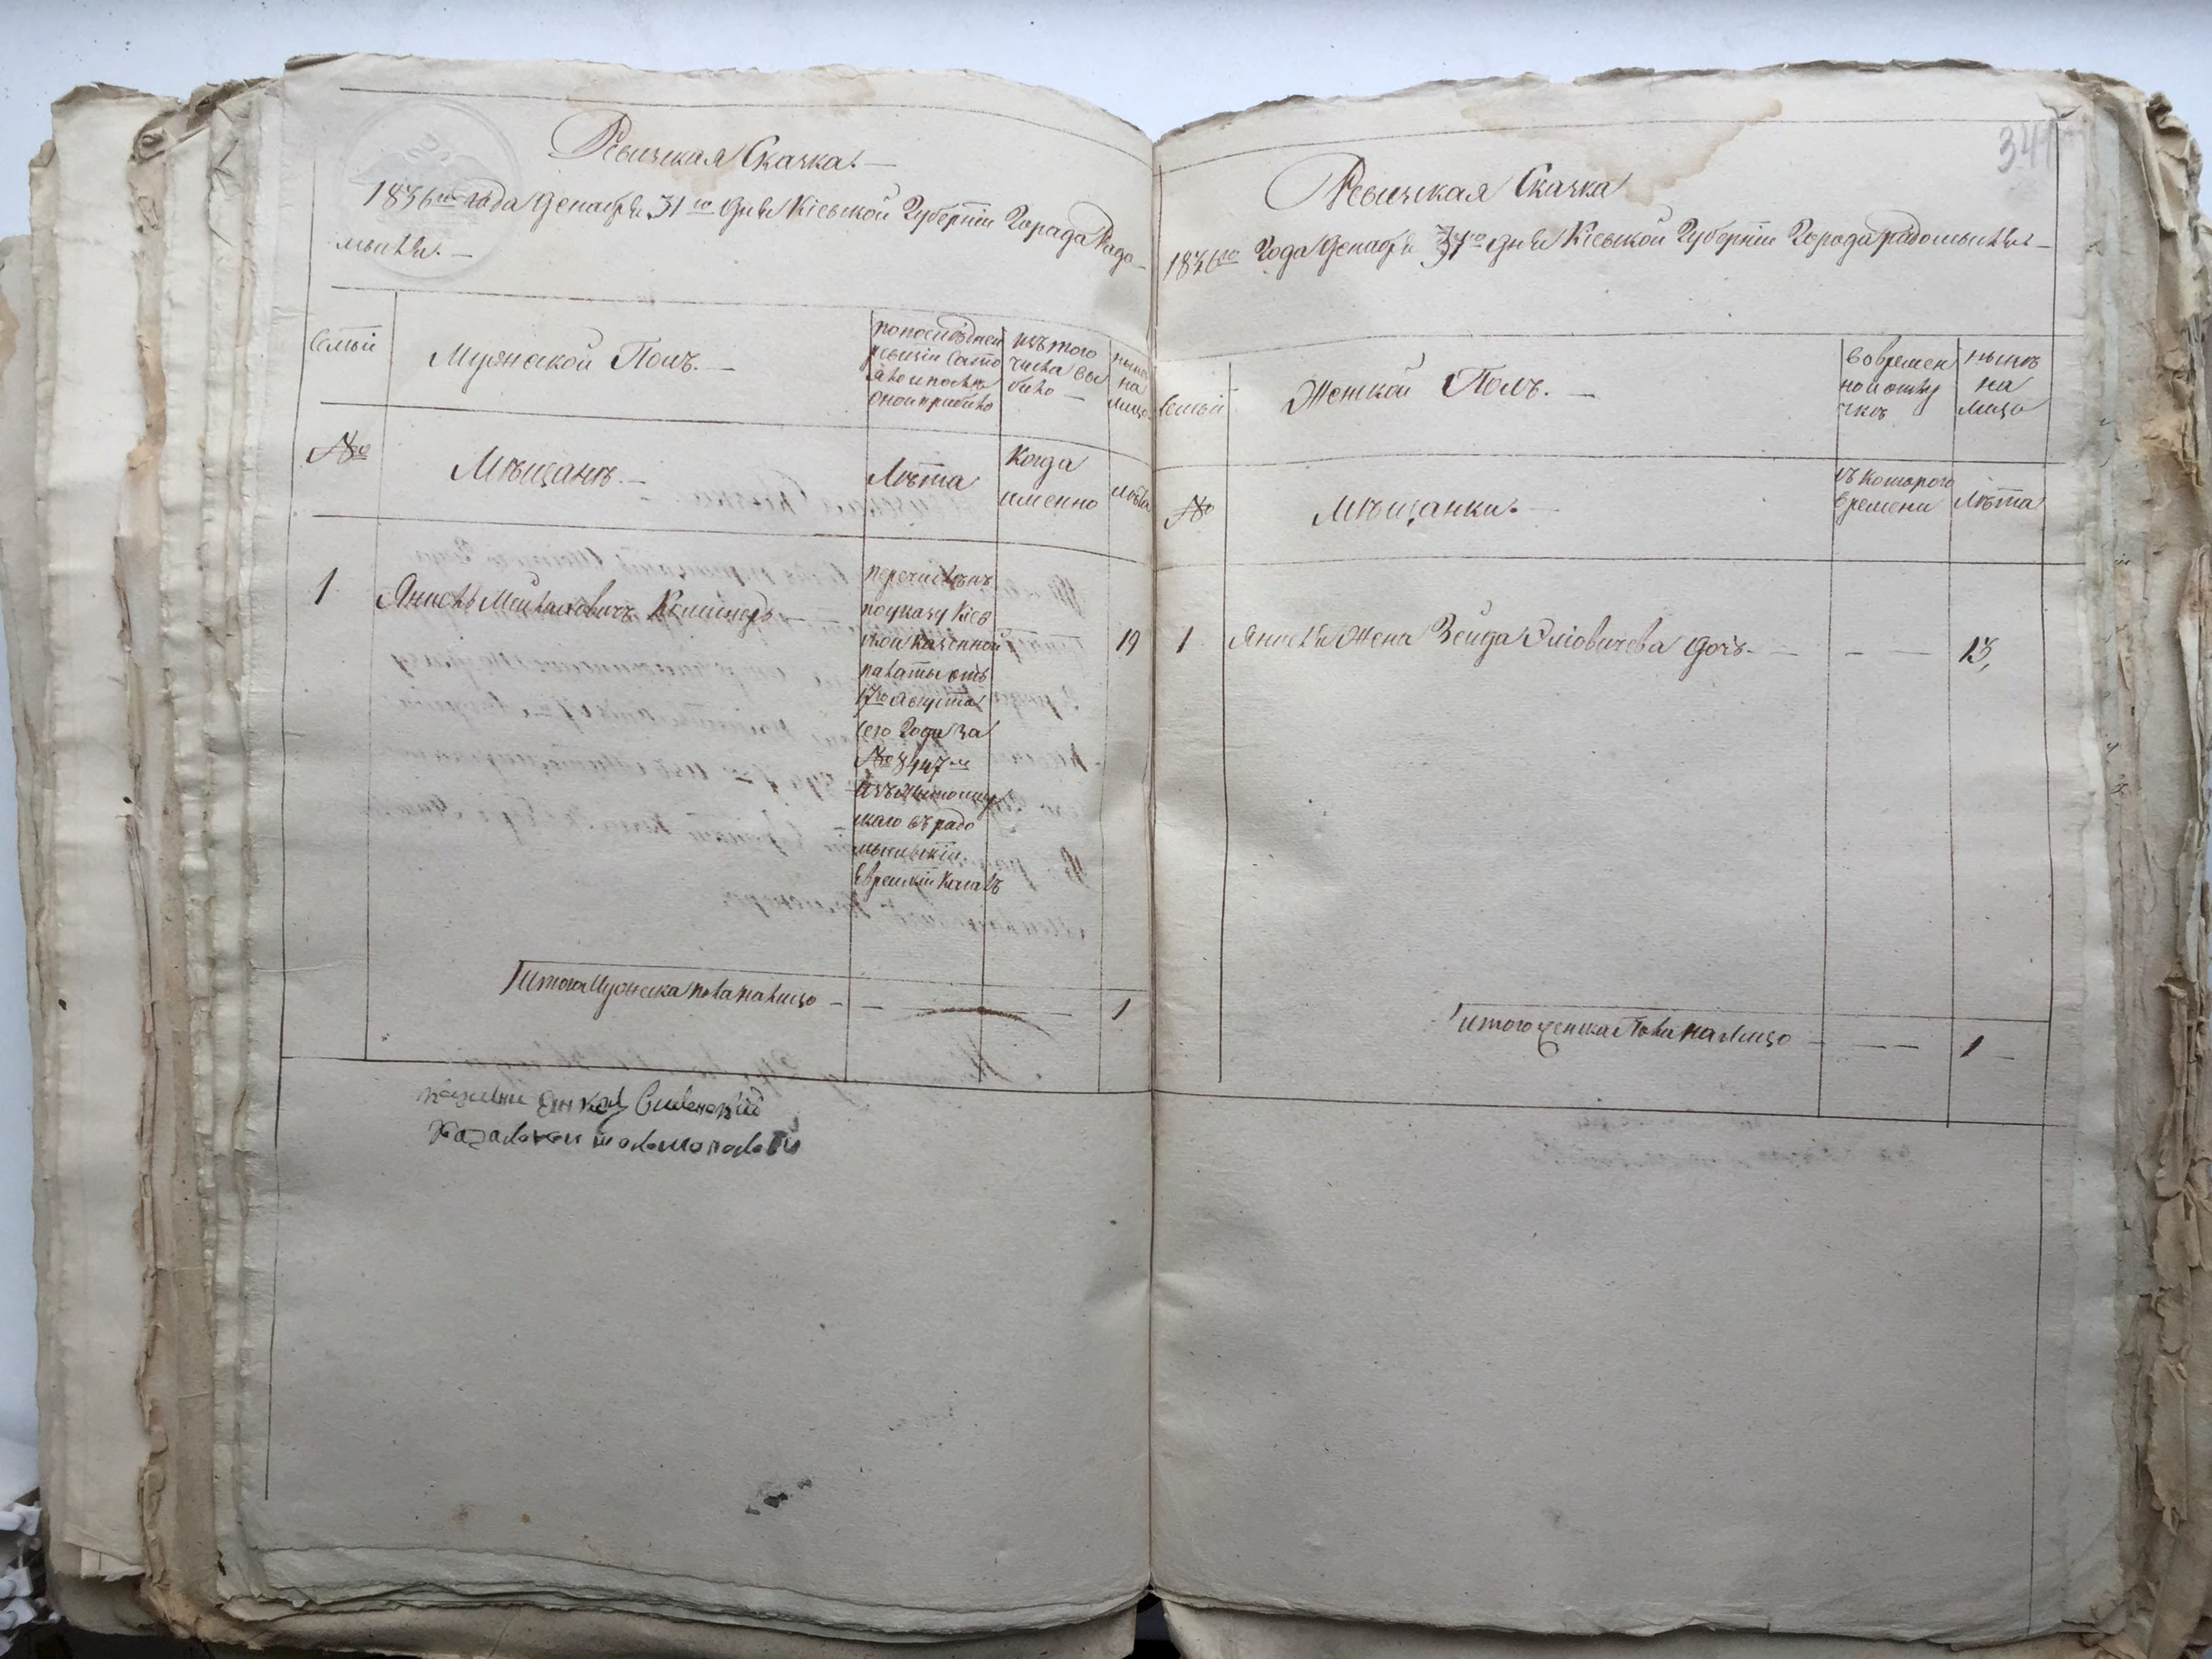 Ревизская Сказка. —
1836го года Декабря 31го дня Кіевской Губерніи Города Радо—
мысля. —
Семьи
Мужеской Полъ. —
по последней
ревизіи состо
яло и после
оной прибыло
изъ того
числа вы
было —
ныне
на
лицо
№
Мѣщане. —
Лѣта
Когда
именно
лѣта
1
перечисленъ
по указу Кіев
ской Казенной
палаты отъ
17го Августа
сего Года за
№
скаго въ радо
мысльскій
Еврейскій Кагалъ
19
Итого Мужеска пола на лицо — — — 1
Ревизская Сказка
1836го Года Декабря 31го дня Кіевской Губерніи Города радомысля —
Семьи
Женской Полъ. —
во времен
ной отлу
чкѣ
нынѣ
на
лицо
№
Мѣщанки. —
съ котораго
времени
Лѣта
1 жена Зейда дочь — — — 13,
Итого женска пола на лицо — — — 1 —